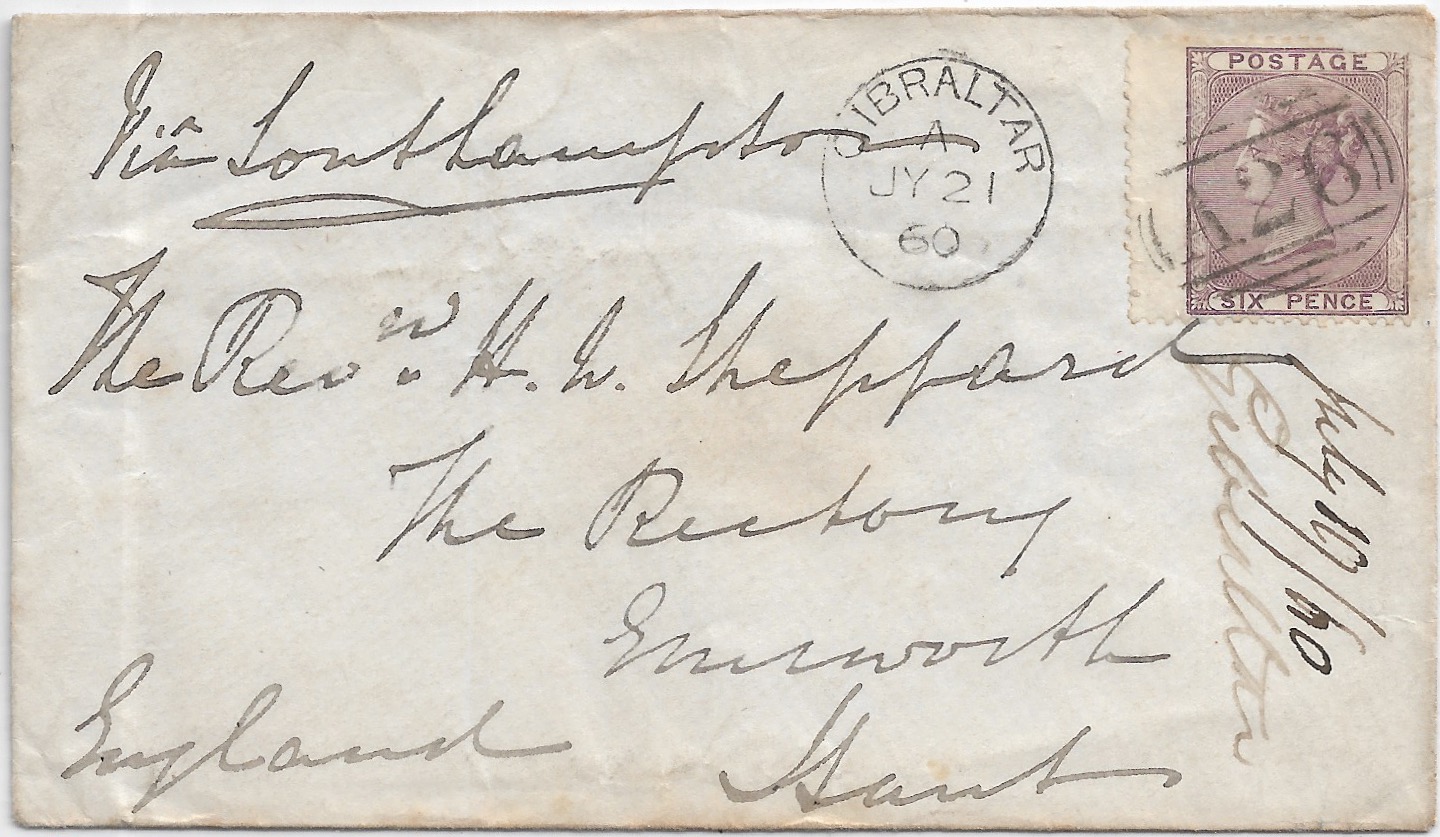 Viâ Southampton
GIBRALTAR
A
JY 21
60
POSTAGE
A26
SIX PENCE
The Revd. H. W. Sheppard
The Rectory
Emsworth
Hants
England
Gibraltar